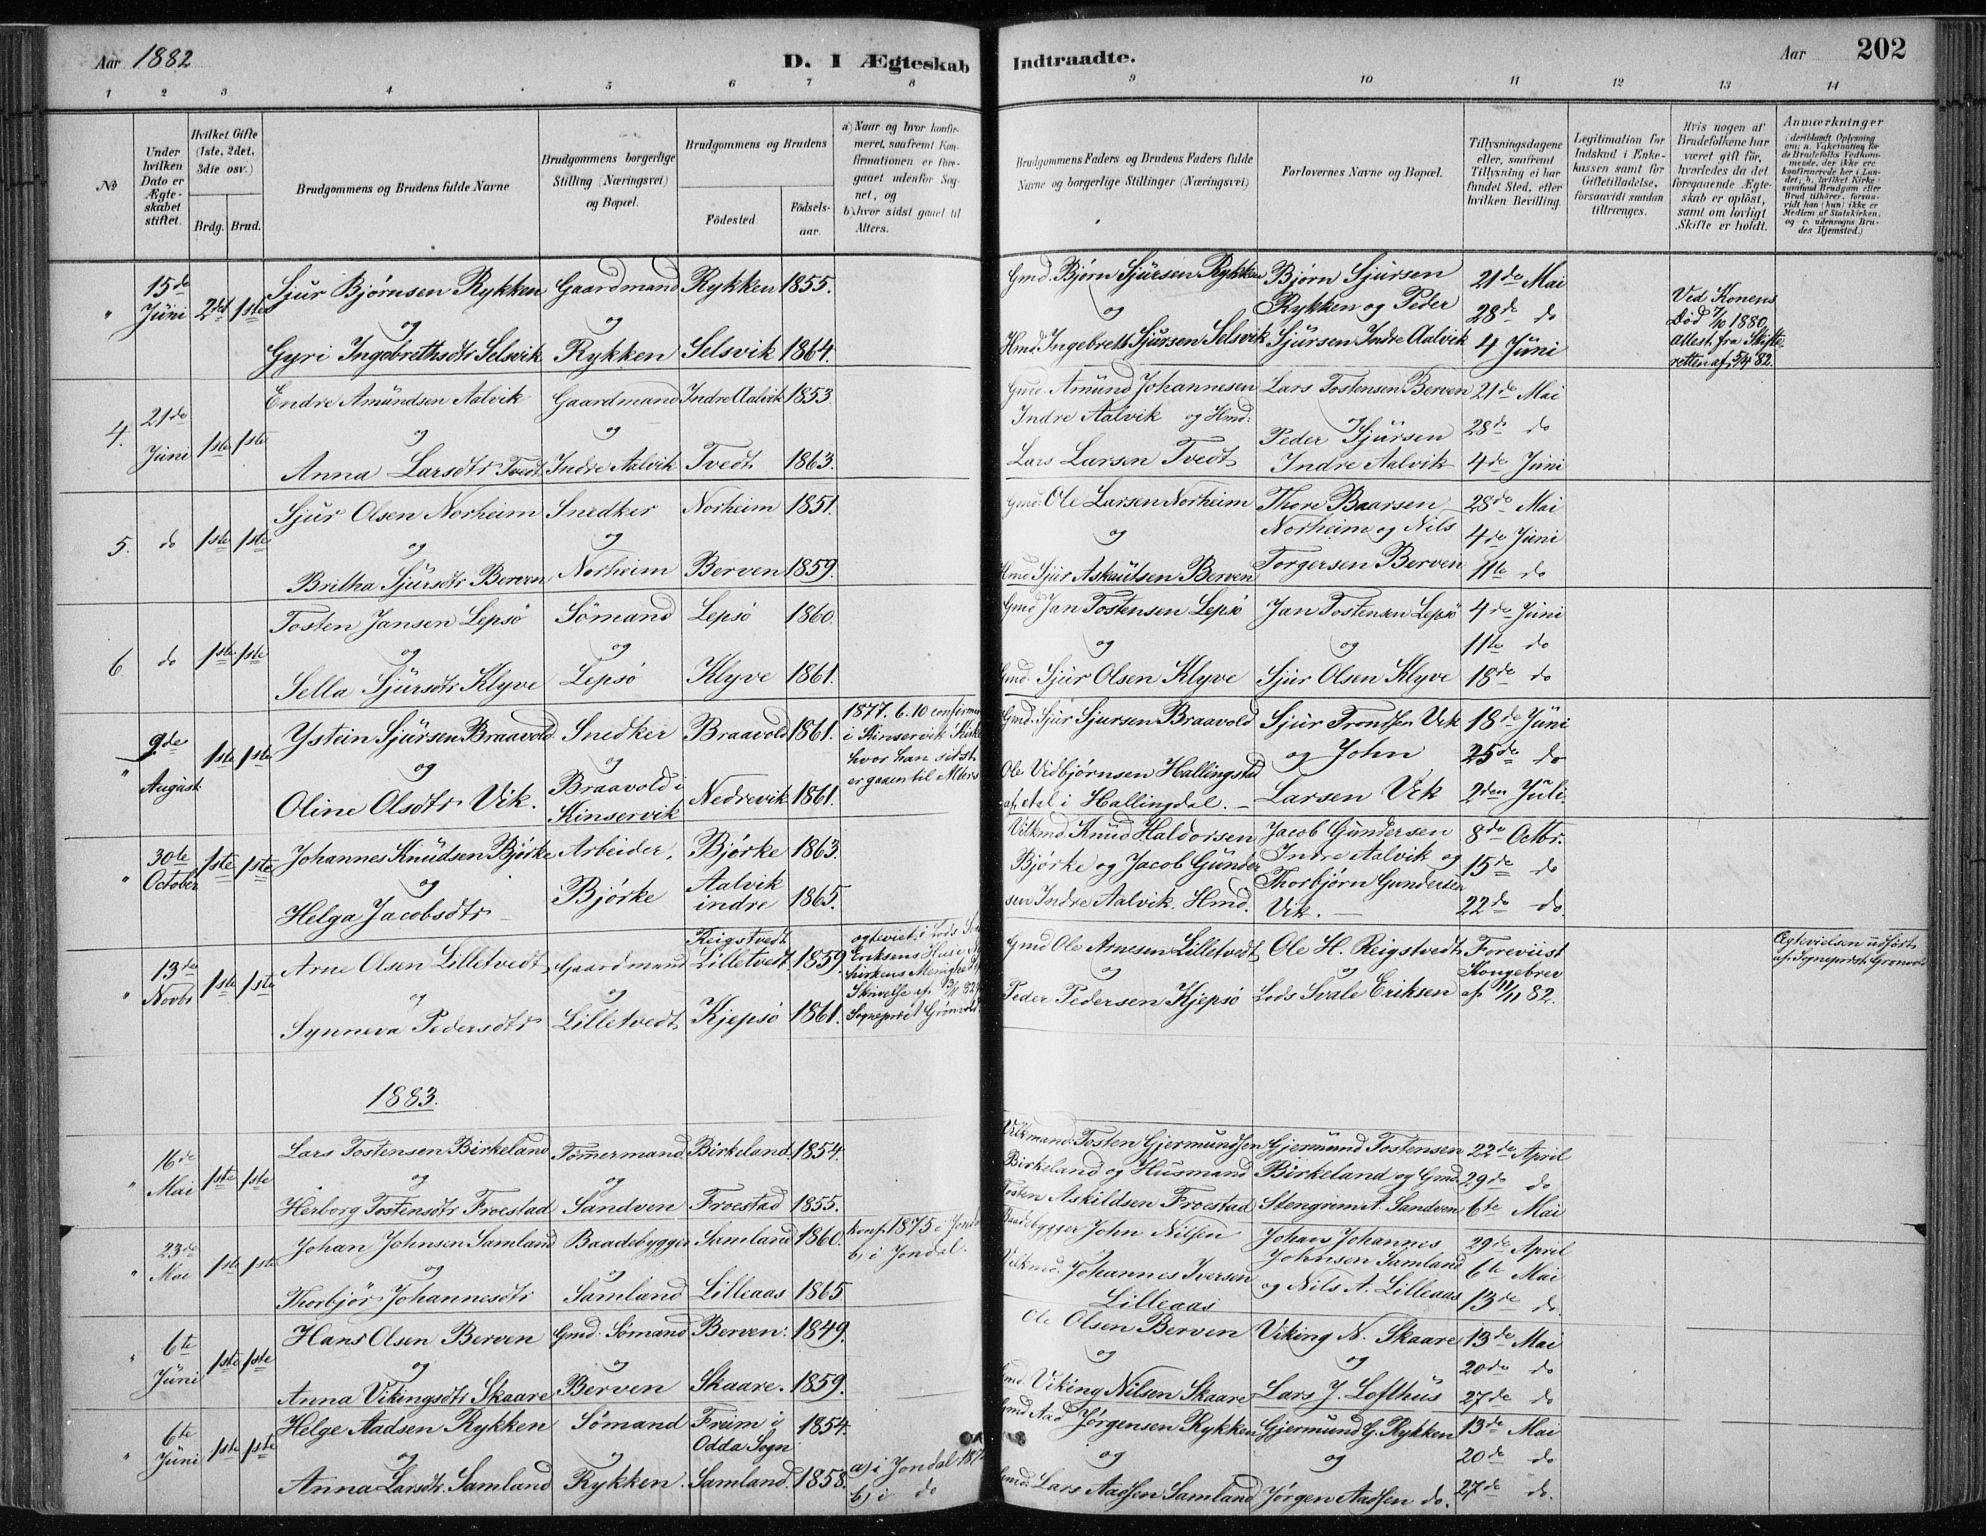 Aar 1882
D. I Ægteskab
Indtraadte.
Aar
202
1 2 3 4 5 6 7 8 9 10 11 12 13 14
No
Under hvilken Dato er Ægteskabet stiftet.
Hvilket Gifte (1ste, 2det, 3die osv.)
Brdg. Brud.
Brudgommens og Brudens fulde Navne
Brudgommens borgerlige Stilling (Næringsvei) og Bopæl.
Brudgommens og Brudens
Fødested.
Fødselsaar.
a) Naar og hvor konfirmeret, saafremt Konfirmationen er foregaaet udenfor Sognet, og
b) hvor sidst gaaet til Alters.
Brudgommens Faders og Brudens Faders fulde Navne og borgerlige Stillinger (Næringsvei)
Forlovernes Navne og Bopæl.
Tillysningsdagene eller, saafremt Tillysning ei har fundet Sted, efter hvilken Bevilling.
Legitimation for Indskud i Enkekassen samt for Giftetilladelse, forsaavidt saadan tiltrænges.
Hvis nogen af Brudefolkene har været gift før, hvorledes da det foregaaende Ægteskab er opløst, samt om lovligt Skifte er holdt.
Anmærkninger (deriblandt Oplysning om: a. Vakcination for de Brudefolks Vedkommende, der ikke ere konfirmerede her i Landet; b. hvilket Kirkesamfund Brudgom eller Brud tilhører, forsaavidt han (hun) ikke er Medlem af Statskirken; og c. udensogns Brudes Hjemsted.)
" 15de Juni 2det 1ste
Sjur Bjørnsen Rykken Gaardmand Rykken 1855.
og og
Gyri Ingebrethsdtr Selsvik Rykken Selsvik 1864.
Gmd. Bjørn Sjursen Rykken
og
Hmd. Ingebreth Sjursen Selsvik
Bjørn Sjursen
Rykken og Peder
Sjursen Indre Aalvik
21de Mai
28de do
4 Juni
Ved Konens
Død 7/10 1880,
attest. fra Skifte
retten af 5/4 82.
4. 21de Juni 1ste 1ste
Endre Amundsen Aalvik Gaardmand Indre Aalvik 1853.
og og
Anna Larsdtr Tvedt Indre Aalvik Tvedt 1863.
Gmd. Amund Johannesen
Indre Aalvik og Hmd:
Lars Larsen Tvedt
Lars Tostensen Berven
og
Peder Sjursen
Indre Aalvik
21de Mai
28de do
4de Juni
5. do 1ste 1ste
Sjur Olsen Norheim Snedker Norheim 1851.
og og
Britha Sjursdtr Berven Norheim Berven 1859.
Gmd. Ole Larsen Norheim
og
Hmd Sjur Askautsen Berven
Thore Baarsen
Norheim og Nils
Torgersen Berven
28de Mai
4de Juni
11te do
6 do 1ste 1ste
Tosten Jansen Lepsø Sømand Lepsø 1860.
og og
Sella Sjursdtr Klyve Lepsø Klyve 1861.
Gmd Jan Tostensen Lepsø
og
Gmd. Sjur Olsen Klyve
Jan Tostensen Lepsø
og
Sjur Olsen Klyve
4de Juni
11te do
18de do
" 9de August 1ste 1ste
Ystein Sjursen Braavold Snedker Braavold 1861.
og og
Oline Olsdtr Vik. Braavold i Kinservik Nedrevik 1861.
1877. 6.10 confirmer
i Kinservik Kirke
hvor han sidst
er gaaen til Alters
Gmd. Sjur Sjursen Braavold
Ole Vidbjørnsen Hallingstad
af Aal i Hallingdal. —
Sjur Trondsen Vik
og John
Larsen Vik
18de Juni
25de do
2den Juli.
" 30te October 1ste 1ste
Johannes Knudsen Bjørke Arbeider, Bjørke 1863.
og
Helga Jacobsdtr Bjørke Aalvik indre 1865.
Vilkmd. Knud Haldorsen
Bjørke og Jacob Gunder
sen Indre Aalvik. Hmd.
Jacob Gundersen
Indre Aalvik og
Thorbjørn Gundersen
Vik. —
8de Octbr.
15de do
22de do.
" 13de Novbr 1ste 1ste
Arne Olsen Lilletvedt Gaardmand Reigstvedt Lilletvedt 1859.
og og
Synneva Pedersdtr Lilletvedt Kjepsø 1861.
Gmd Ole Arnesen Lilletvedt
og
Peder Pedersen Kjepsø
Ole H. Reigstvedt
og
Lods Svale Eriksen
Foreviist
Kongebrev
af 11/11 82.
Ægtevielsen udført
af Sogneprst. Grønvold
1883.
" 16de Mai 1ste 1ste
Lars Tostensen Birkeland Tømmermand Birkeland. 1854.
og og
Herborg Tostensdtr Froestad Sandven Froestad 1855.
Vilkmand Tosten Gjermundsen
Birkeland og Husmand
Tosten Askildsen Froestad
Gjermund Tostensen
Birkeland og Gmd
Stengrim A. Sandven
22de April
29de do
6te Mai
" 23de Mai 1ste 1ste
Johan Johnsen Samland Baadebygger Samland 1860.
og og
Thorbjør Johannesdtr Samland Lilleaas 1865
konf. 1875 i Jondal
b, i Jondal.
Baadebygger John Nilsen
Vilkmd. Johannes Iversen
Lilleaas
Johans Johannes
Johnsen Samland
og Nils A. Lilleaas
29de April
6te Mai
13de do.
" 6te Juni 1ste 1ste
Hans Olsen Berven Gmd. Sømand Berven: 1849.
og og
Anna Vikingsdtr Skaare Berven Skaare. 1859.
Ole Olsen Berven
og
Gmd. Viking Nilsen Skaare
Viking N. Skaare
og
Lars J. Lofthus
13de Mai
20de do
27de do
" 6te Juni 1ste 1ste
Helge Aadsen Rykken Sømand Freim i Odda Sogn 1854.
og og
Anna Larsdtr. Samland Rykken. Samland. 1858.
a) i Jondal
b) i do
Gmd Aad Jørgensen Rykken
og
Gmd. Lars Aadsen Samland
Gjermund G. Rykken
og
Jørgen Aadsen do.
13de Mai
20de do
27de do.